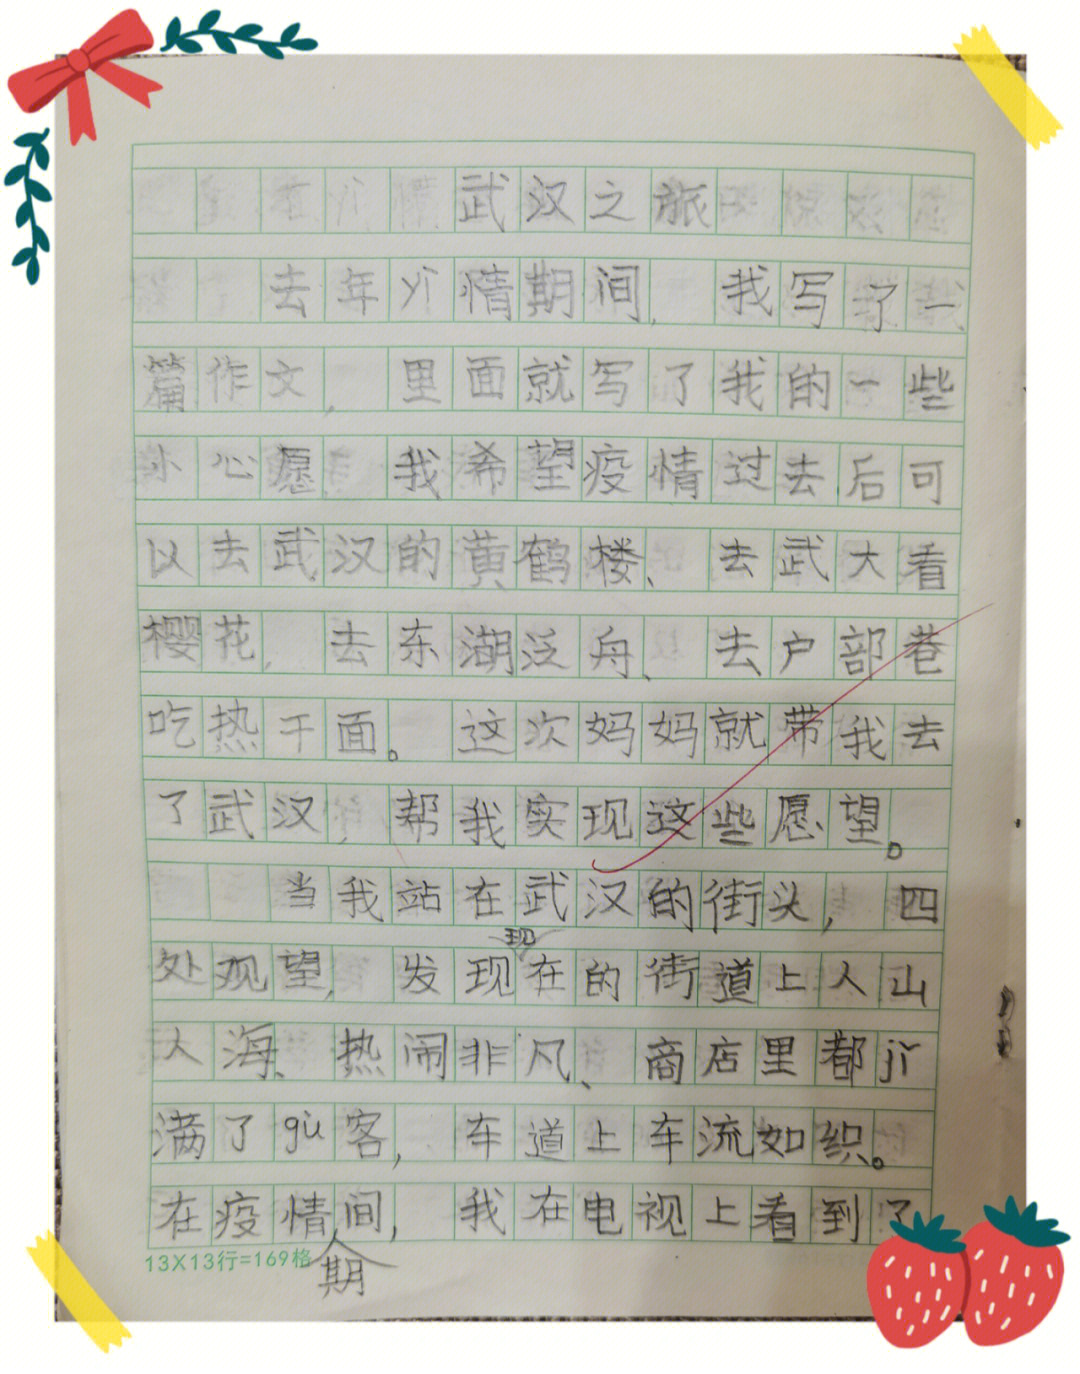 武汉之旅
去年yǐ情期间，我写了一
篇作文，里面就写了我的一些
小心愿，我希望疫情过去后可
以去武汉的黄鹤楼、去武大看
樱花，去东湖泛舟、去户部巷
吃热干面。这次妈妈就带我去
了武汉，帮我实现这些愿望。
当我站在武汉的街头，四
处观望，发现现在的街道上人山
人海、热闹非凡、商店里都jǐ
满了gù客，车道上车流如织。
在疫情期间，我在电视上看到了
13X13行=169格